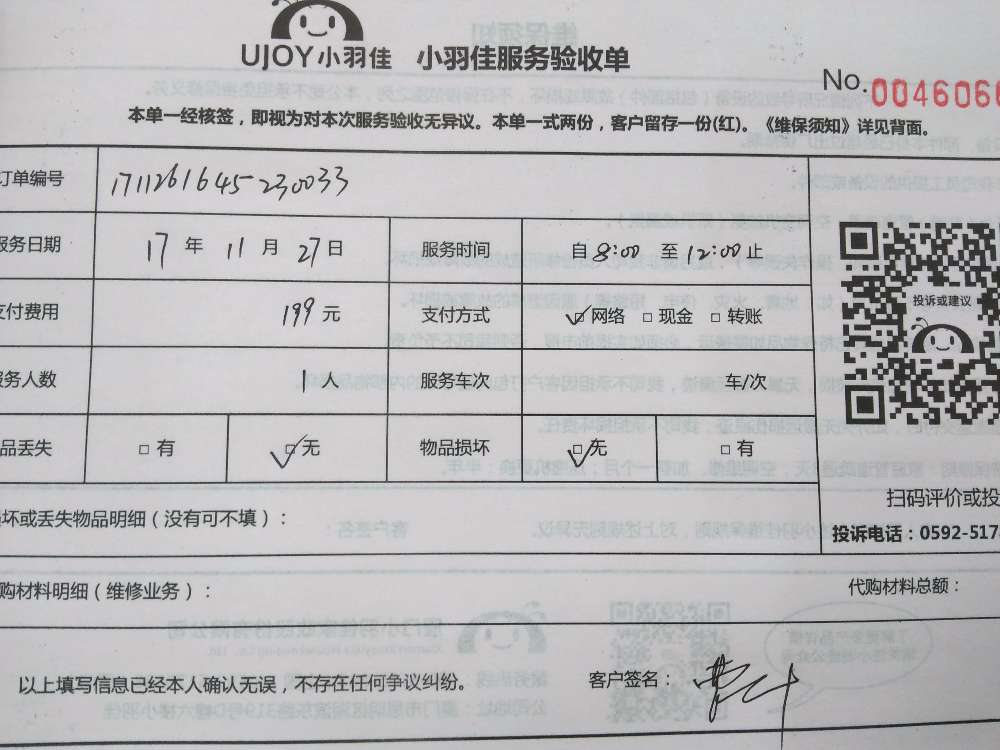 UJOY小羽佳 小羽佳服务验收单
No.0046066
本单一经核签，即视为对本次服务验收无异议。本单一式两份，客户留存一份(红)。《维保须知》详见背面。
订单编号 1711261645230033
服务日期 17 年 11 月 27 日 服务时间 自 8:00 至 12:00 止
支付费用 199 元 支付方式 ☑网络 □现金 □转账
服务人数 1 人 服务车次 车/次
品丢失 □有 ☑无 物品损坏 ☑无 □有
投诉或建议
扫码评价或投
投诉电话：0592-5178
坏或丢失物品明细（没有可不填）：
购材料明细（维修业务）： 代购材料总额：
以上填写信息已经本人确认无误，不存在任何争议纠纷。 客户签名：